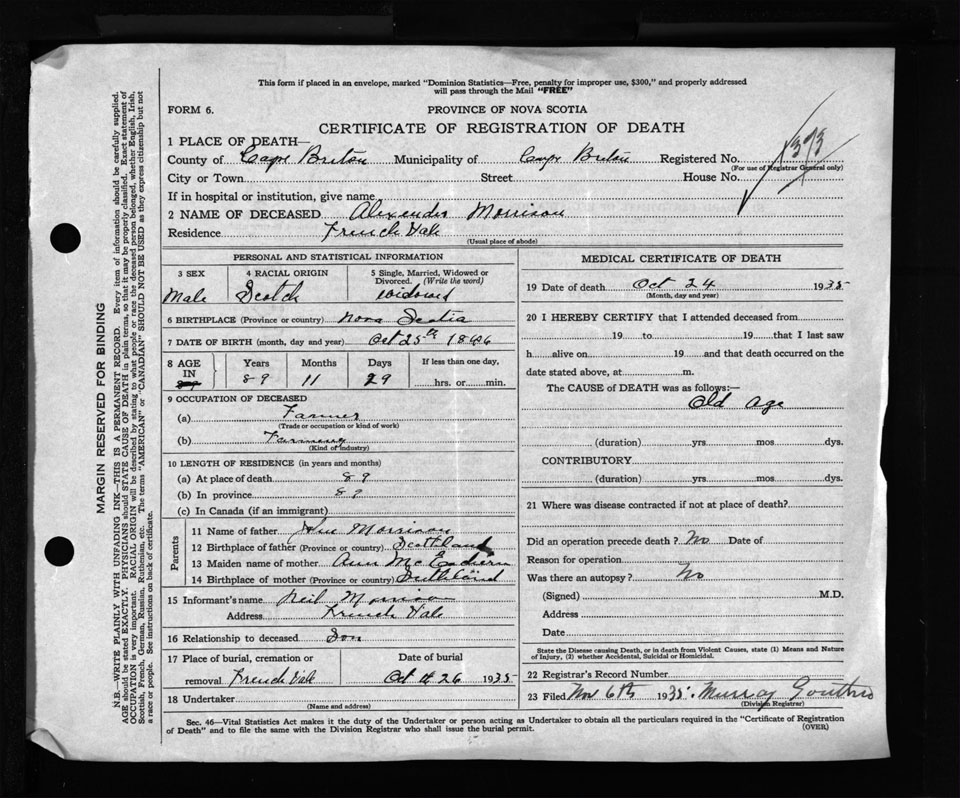 This form if placed in an envelope, marked "Dominion Statistics—Free, penalty for improper use, $300," and properly addressed
will pass through the Mail "FREE"
FORM 6. PROVINCE OF NOVA SCOTIA
CERTIFICATE OF REGISTRATION OF DEATH
1 PLACE OF DEATH—
County of Cape Breton Municipality of Cape Breton Registered No. 393
(For use of Registrar General only)
City or Town Street House No.
If in hospital or institution, give name
2 NAME OF DECEASED Alexander Morrison
Residence French Vale
(Usual place of abode)
PERSONAL AND STATISTICAL INFORMATION
3 SEX 4 RACIAL ORIGIN 5 Single, Married, Widowed or
Divorced. (Write the word)
Male Scotch Widowed
6 BIRTHPLACE (Province or country) Nova Scotia
7 DATE OF BIRTH (month, day and year) Oct 25th
8 AGE Years Months Days If less than one day,
IN 89 11 29 hrs. or min.
9 OCCUPATION OF DECEASED
(a) Farmer
(Trade or occupation or kind of work)
(b) Farming
(Kind of industry)
10 LENGTH OF RESIDENCE (in years and months)
(a) At place of death 89
(b) In province 89
(c) In Canada (if an immigrant)
Parents
11 Name of father John Morrison
12 Birthplace of father (Province or country) Scotland
13 Maiden name of mother Ann McEachern
14 Birthplace of mother (Province or country)
15 Informant's name Neil Morrison
Address French Vale
16 Relationship to deceased Son
17 Place of burial, cremation or Date of burial
removal French Vale Oct 26 1935
18 Undertaker
(Name and address)
MEDICAL CERTIFICATE OF DEATH
19 Date of death Oct 24 1935
(Month, day and year)
20 I HEREBY CERTIFY that I attended deceased from
19 to 19 that I last saw
h alive on 19 and that death occurred on the
date stated above, at m.
The CAUSE of DEATH was as follows:—
Old Age
(duration) yrs. mos. dys.
CONTRIBUTORY
(duration) yrs. mos. dys.
21 Where was disease contracted if not at place of death?
Did an operation precede death? No Date of
Reason for operation
Was there an autopsy? No
(Signed) M.D.
Address
Date
State the Disease causing Death, or in death from Violent Causes, state (1) Means and Nature
of Injury, (2) whether Accidental, Suicidal or Homicidal.
22 Registrar's Record Number
23 Filed Nov 6th 1935. Murray
(Division Registrar)
Sec. 46—Vital Statistics Act makes it the duty of the Undertaker or person acting as Undertaker to obtain all the particulars required in the "Certificate of Registration
of Death" and to file the same with the Division Registrar who shall issue the burial permit. (OVER)
MARGIN RESERVED FOR BINDING
N.B.—WRITE PLAINLY WITH UNFADING INK—THIS IS A PERMANENT RECORD. Every item of information should be carefully supplied.
AGE should be stated EXACTLY. PHYSICIANS should STATE CAUSE OF DEATH in plain terms, so that it may be properly classified. Exact statement of
OCCUPATION is very important. RACIAL ORIGIN will be described by stating to what people or race the deceased person belonged, whether English, Irish,
Scottish, French, German, Russian, Ruthenian, etc. The terms "AMERICAN" or "CANADIAN" SHOULD NOT BE USED as they express citizenship but not
a race or people. See instructions on back of certificate.